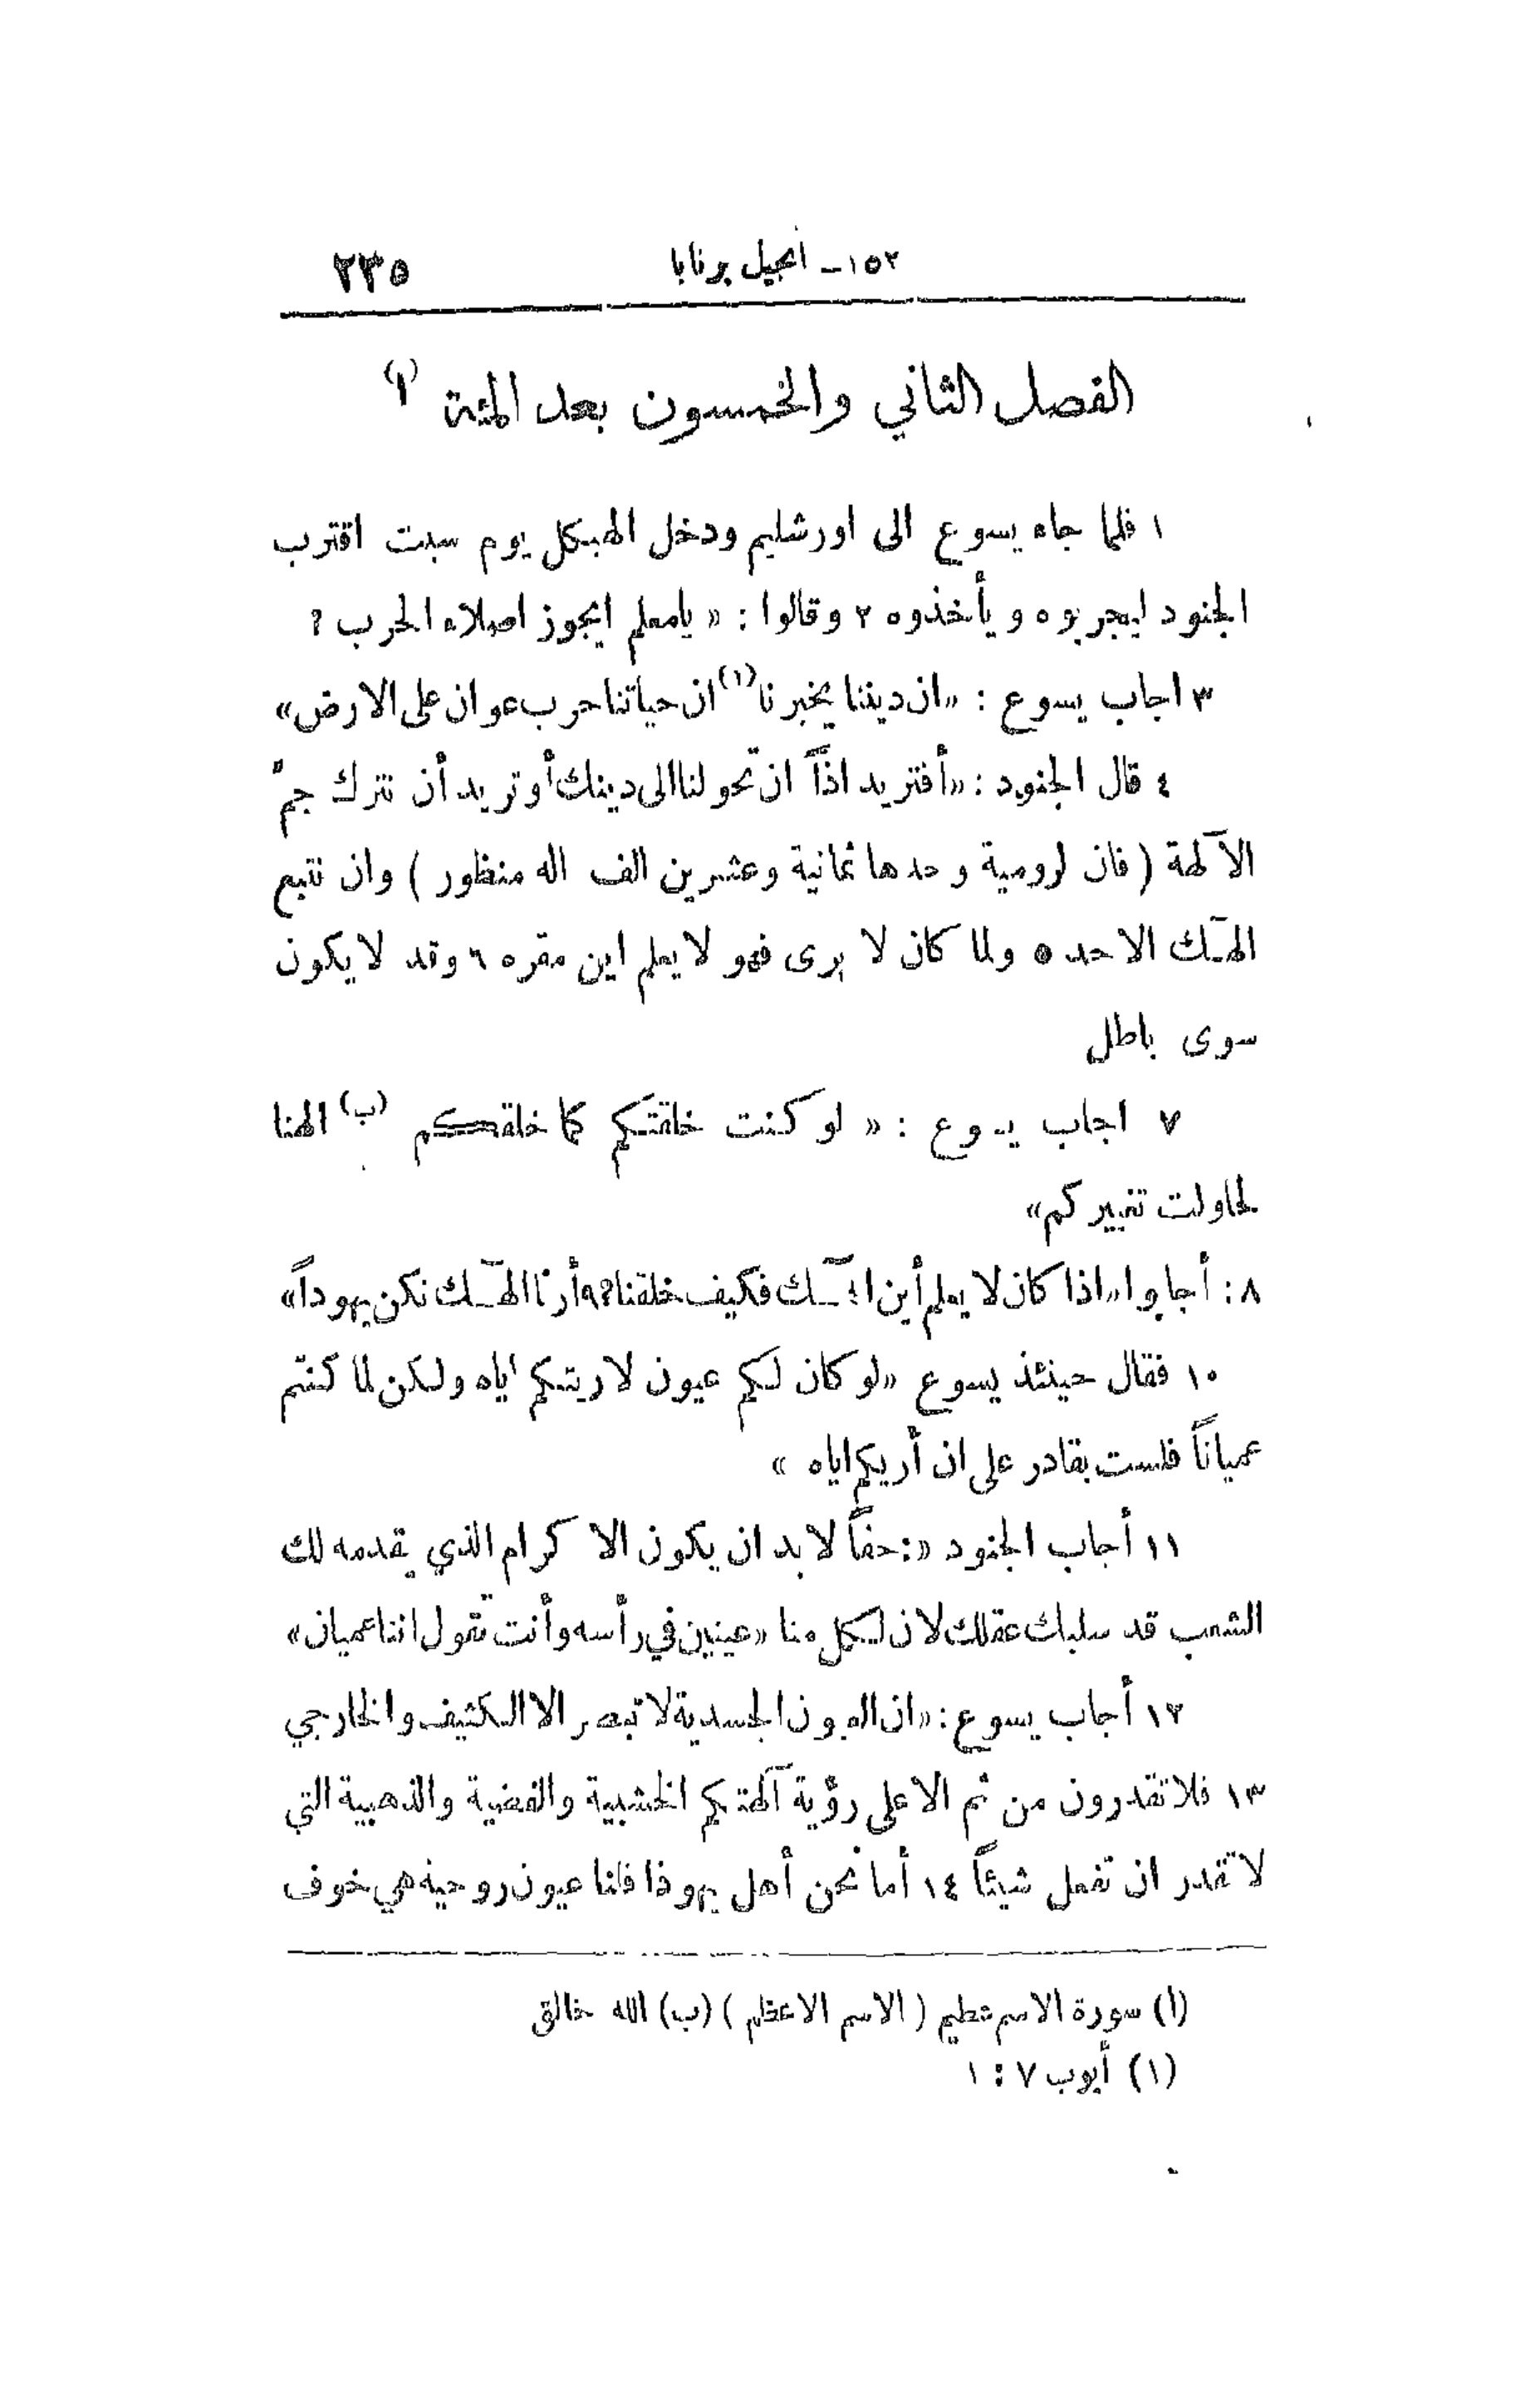 ١٥٢ - انجيل برنابا ٢٣٥
الفصل الثاني والخمسون بعد المئة (ا)
١ فلما جاء يسوع الى اورشليم ودخل الهيكل يوم سبت اقترب
الجنود ليجربوه ويأخذوه ٢ وقالوا : « يامعلم ايجوز اصلاء الحرب ؟
٣ اجاب يسوع : «ان ديننا يخبرنا (١) ان حياتنا حرب عوان على الارض»
٤ قال الجنود : «أفتريد اذاً ان تحولنا الى دينك أو تريد أن نترك جمّ
الآلهة ( فان لرومية وحدها ثمانية وعشرين الف اله منظور ) وان نتبع
الهـٓك الاحد ٥ ولما كان لا يرى فهو لا يعلم اين مقره ٦ وقد لا يكون
سوى باطل
٧ اجاب يسوع : « لو كنت خلقتكم كما خلقكم (ب) الهنا
لحاولت تغييركم»
٨ : أجابوا «اذا كان لا يعلم أين الهـٓك فكيف خلقنا ؟ ٩ أرنا الهـٓك نكن يهوداً»
١٠ فقال حينئذ يسوع «لو كان لكم عيون لاريتكم اياه ولكن لما كنتم
عمياناً فلست بقادر على ان أريكم اياه »
١١ أجاب الجنود «: حقاً لا بد ان يكون الاكرام الذي يقدمه لك
الشعب قد سلبك عقلك لان لكل منا «عينين في رأسه وأنت تقول اننا عميان»
١٢ أجاب يسوع : «ان العيون الجسدية لا تبصر الا الكثيف والخارجي
١٣ فلا تقدرون من ثم الا على رؤية آلهتكم الخشبية والفضية والذهبية التي
لا تقدر ان تفعل شيئاً ١٤ أما نحن أهل يهوذا فلنا عيون روحية هي خوف
(ا) سورة الاسم عظيم ( الاسم الاعظم ) (ب) الله خالق
(١) أيوب ٧ : ١